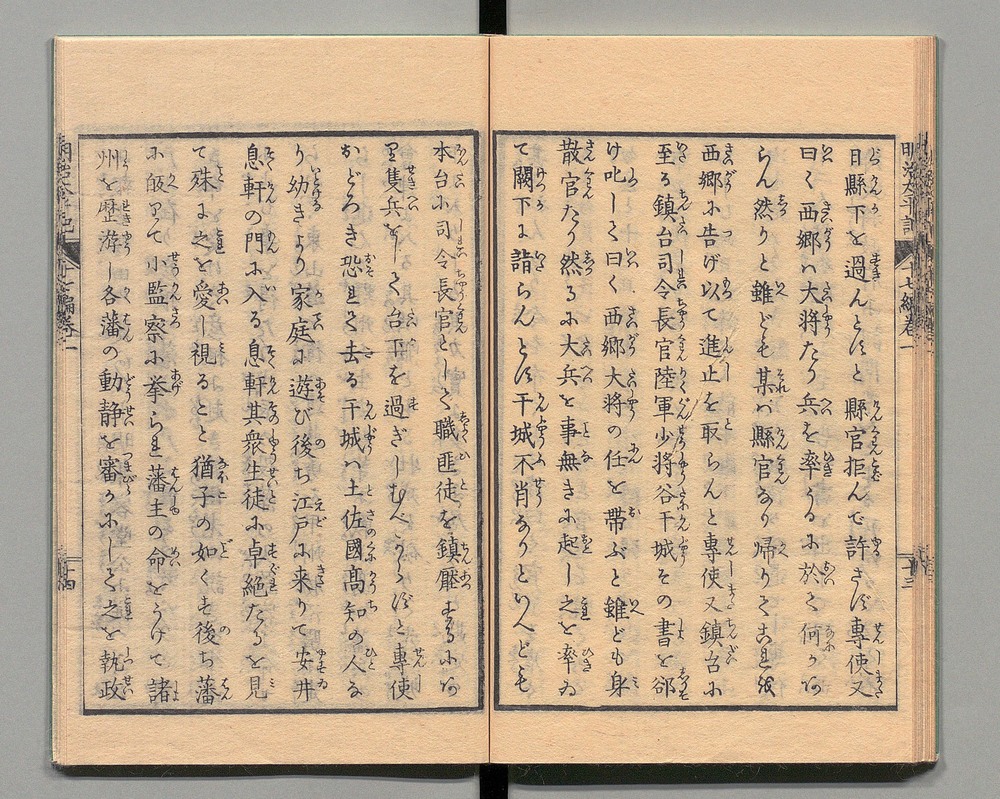 明治太平記 十七編卷一 十三
日縣下を過んとすと縣官拒んで許さず專使又
曰く西郷ハ大將たり兵を率うるに於て何かあ
らん然りと雖ども某ハ縣官なり帰りて之を
西郷に告げ以て進止を取らんと專使又鎮台に
至る鎮台司令長官陸軍少將谷干城その書を郤
け叱して曰く西郷大將の任を帶ぶと雖ども身
散官たり然るに大兵を事無きに起し之を率ゐ
て闕下に詣らんとす干城不肖なりといへども
本台に司令長官として職匪徒を鎮壓するにあ
り隻兵をして台下を過ぎしむべからずと專使
おどろき恐れて去る干城ハ土佐國髙知の人な
り幼きより家庭に遊び後ち江戸に来りて安井
息軒の門に入る息軒其衆生徒に卓絶たるを見
て殊に之を愛し視ること猶子の如くも後ち藩
に皈りて小監察に挙られ藩主の命をうけて諸
州を歴游し各藩の動静を審かにして之を執政
明治太平記 十七編卷一 十四